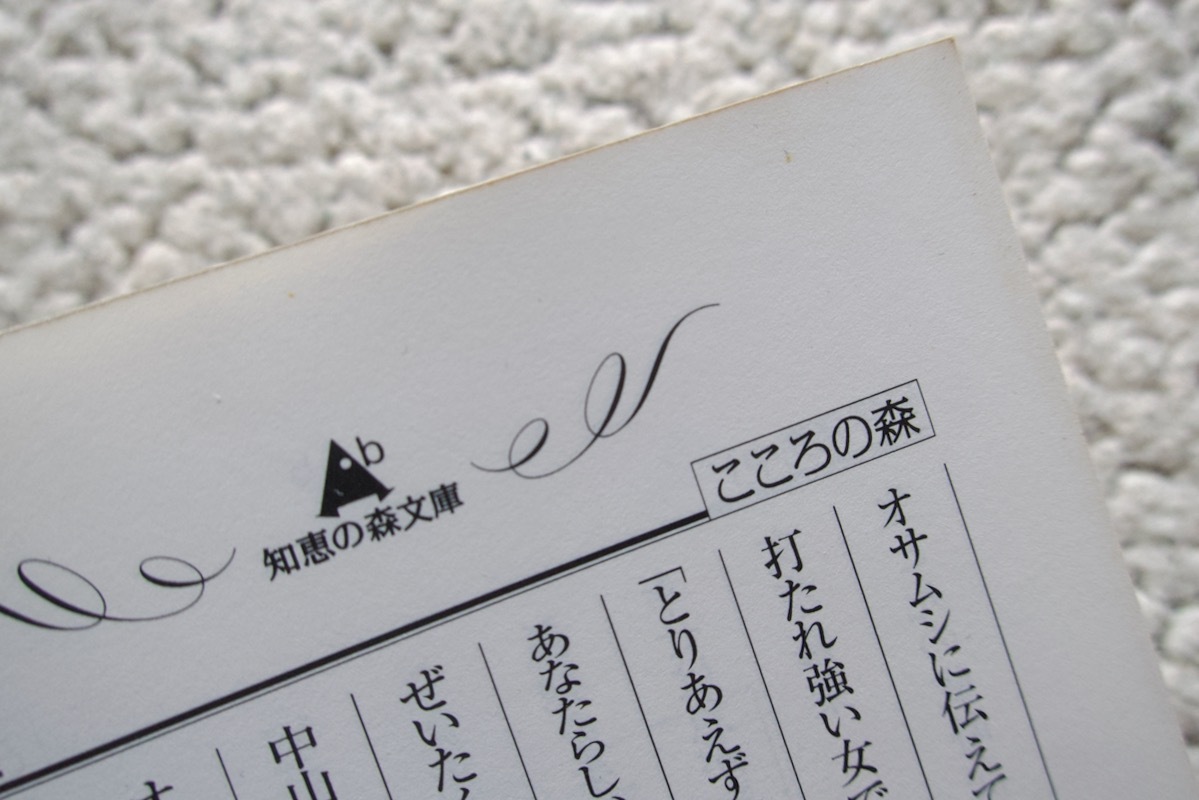 Ab
知恵の森文庫
こころの森
オサムシに伝えて
打たれ強い女で
「とりあえず
あなたらし
ぜいたく
中山